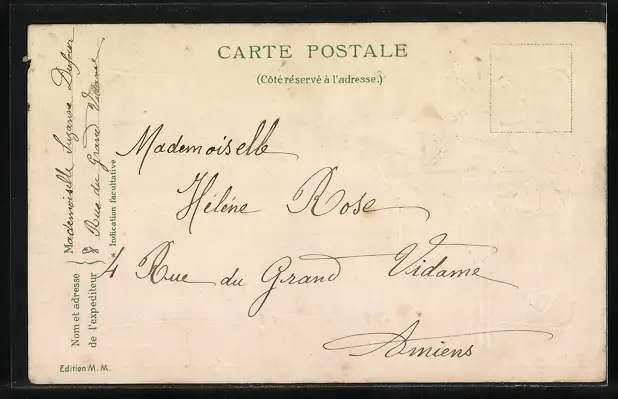 CARTE POSTALE
(Côté réservé à l'adresse.)
Mademoiselle
Hélène Rose
4 Rue du Grand Vidame
Amiens
Nom et adresse
de l'expediteur
Mademoiselle Suzanne
8 Rue du Grand Vidame
* Indication facultative
Edition M. M.